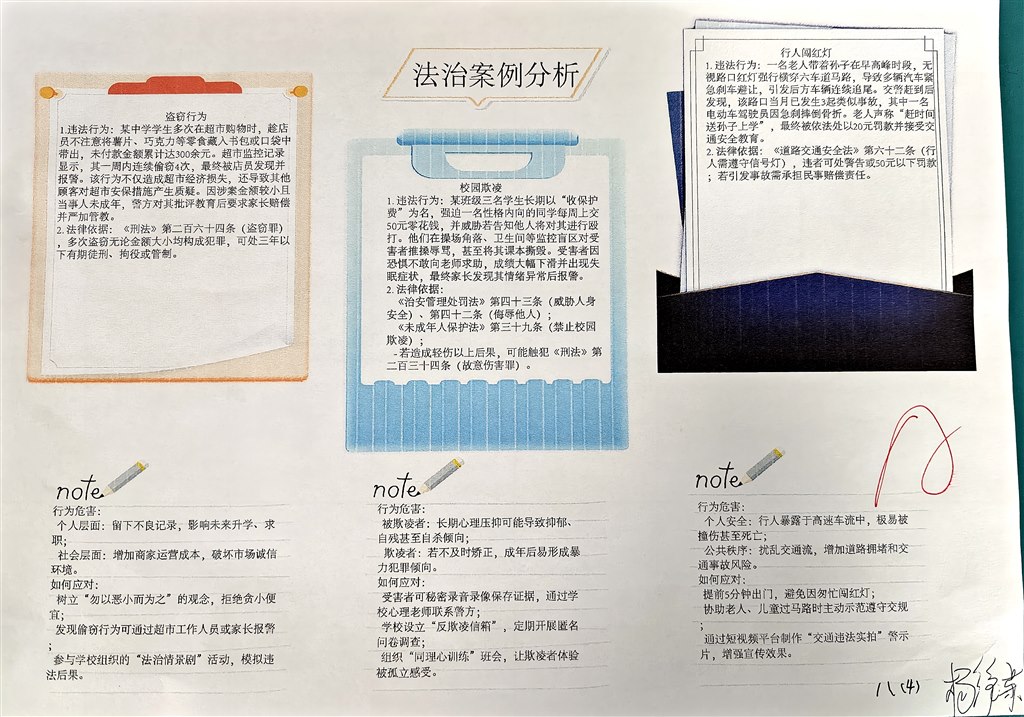 法治案例分析
盗窃行为
1.违法行为：某中学学生多次在超市购物时，趁店
员不注意将薯片、巧克力等零食藏入书包或口袋中
带出，未付款金额累计达300余元。超市监控记录
显示，其一周内连续偷窃4次，最终被店员发现并
报警。该行为不仅造成超市经济损失，还导致其他
顾客对超市安保措施产生质疑。因涉案金额较小且
当事人未成年，警方对其批评教育后要求家长赔偿
并严加管教。
2. 法律依据：《刑法》第二百六十四条（盗窃罪）
，多次盗窃无论金额大小均构成犯罪，可处三年以
下有期徒刑、拘役或管制。
校园欺凌
1. 违法行为：某班级三名学生长期以“收保护
费”为名，强迫一名性格内向的同学每周上交
50元零花钱，并威胁若告知他人将对其进行殴
打。他们在操场角落、卫生间等监控盲区对受
害者推搡辱骂，甚至将其课本撕毁。受害者因
恐惧不敢向老师求助，成绩大幅下滑并出现失
眠症状，最终家长发现其情绪异常后报警。
2. 法律依据：
《治安管理处罚法》第四十三条（威胁人身
安全）、第四十二条（侮辱他人）；
《未成年人保护法》第三十九条（禁止校园
欺凌）；
-若造成轻伤以上后果，可能触犯《刑法》第
二百三十四条（故意伤害罪）。
行人闯红灯
1. 违法行为：一名老人带着孙子在早高峰时段，无
视路口红灯强行横穿六车道马路，导致多辆汽车紧
急刹车避让，引发后方车辆连续追尾。交警赶到后
发现，该路口当月已发生3起类似事故，其中一名
电动车驾驶员因急刹摔倒骨折。老人声称“赶时间
送孙子上学”，最终被依法处以20元罚款并接受交
通安全教育。
2. 法律依据：《道路交通安全法》第六十二条（行
人需遵守信号灯），违者可处警告或50元以下罚款
；若引发事故需承担民事赔偿责任。
note
行为危害：
个人层面：留下不良记录，影响未来升学、求
职；
社会层面：增加商家运营成本，破坏市场诚信
环境。
如何应对：
树立“勿以恶小而为之”的观念，拒绝贪小便
宜；
发现偷窃行为可通过超市工作人员或家长报警
；
参与学校组织的“法治情景剧”活动，模拟违
法后果。
note
行为危害：
被欺凌者：长期心理压抑可能导致抑郁、
自残甚至自杀倾向；
欺凌者：若不及时矫正，成年后易形成暴
力犯罪倾向。
如何应对：
受害者可秘密录音录像保存证据，通过学
校心理老师联系警方；
学校设立“反欺凌信箱”，定期开展匿名
问卷调查；
组织“同理心训练”班会，让欺凌者体验
被孤立感受。
note
行为危害：
个人安全：行人暴露于高速车流中，极易被
撞伤甚至死亡；
公共秩序：扰乱交通流，增加道路拥堵和交
通事故风险。
如何应对：
提前5分钟出门，避免因匆忙闯红灯；
协助老人、儿童过马路时主动示范遵守交规
；
通过短视频平台制作“交通违法实拍”警示
片，增强宣传效果。
八(4)